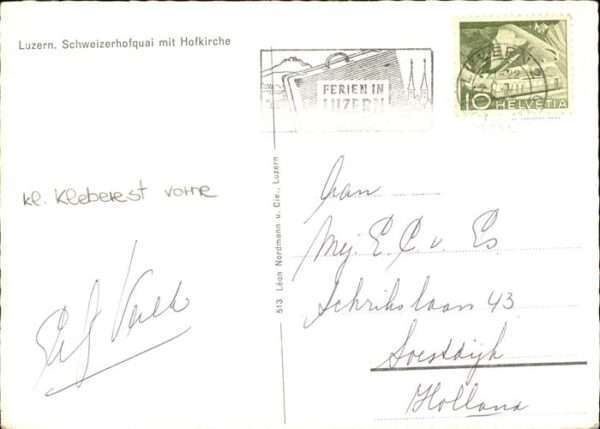 Luzern. Schweizerhofquai mit Hofkirche
FERIEN IN
LUZERN
LUZERN
10 HELVETIA
kl. Kleberest vorne
513 Léon Nordmann u. Cie., Luzern
Aan
Mej. E. C. v. Es
Schrikslaan 43
Soestdijk
Holland